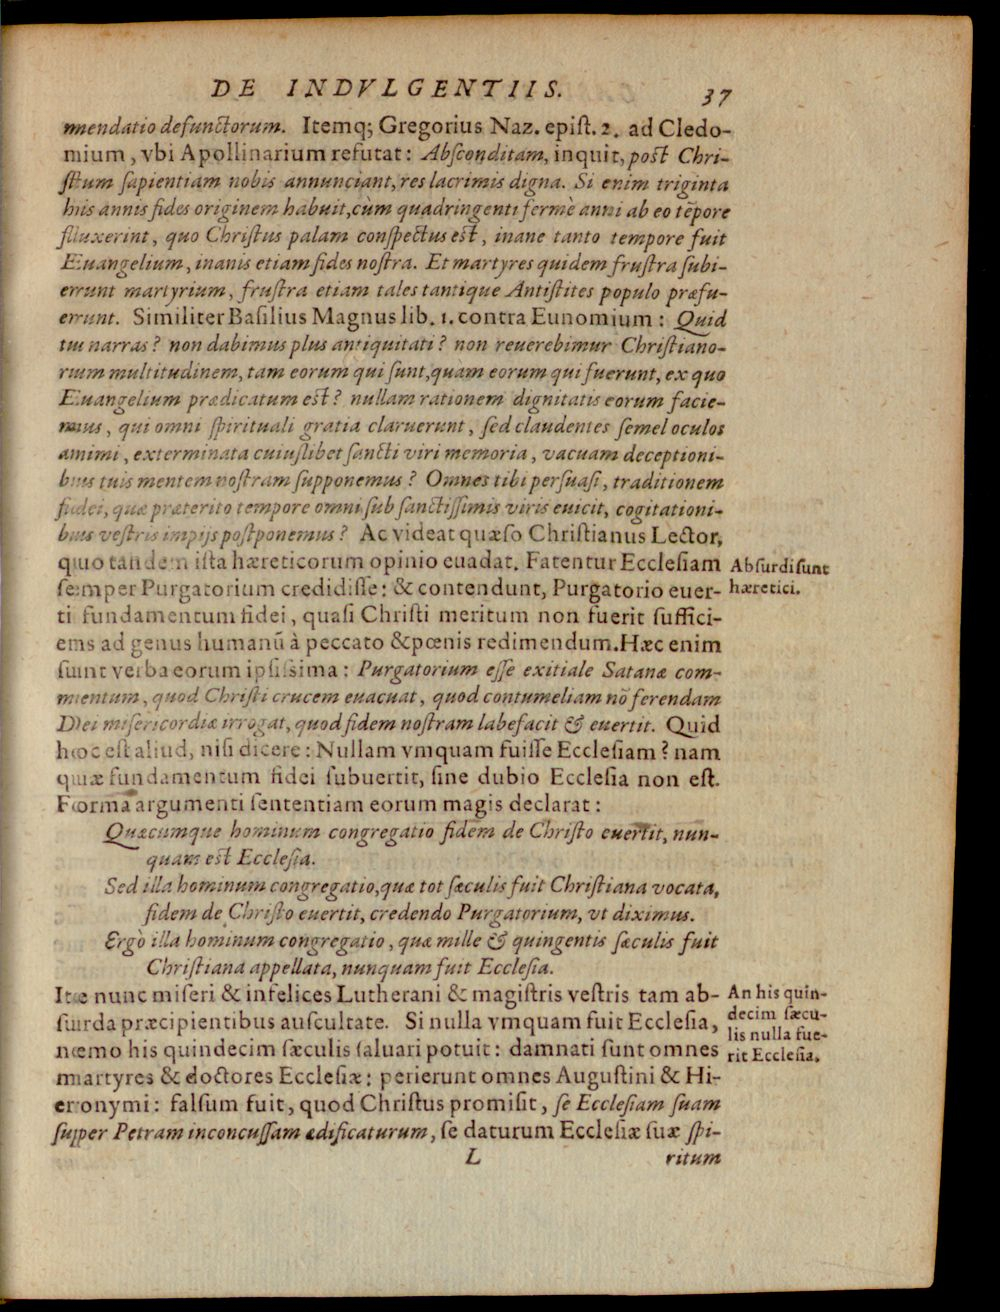 DE INDVLGENTIIS. 37
mendatio defunctorum. Itemq; Gregorius Naz. epist. 2. ad Cledo-
mium, vbi Apollinarium refutat: Absconditam, inquit, post Chri-
stum sapientiam nobis annunciant, res lacrimis digna. Si enim triginta
his annis fides originem habuit, cùm quadringenti fermè anni ab eo tẽpore
fluxerint, quo Christus palam conspectus est, inane tanto tempore fuit
Euangelium, inanis etiam fides nostra. Et martyres quidem frustra subi-
errunt martyrium, frustra etiam tales tantique Antistites populo præfu-
errunt. Similiter Basilius Magnus lib. 1. contra Eunomium: Quid
tu narras? non dabimus plus antiquitati? non reuerebimur Christiano-
rum multitudinem, tam eorum qui sunt, quàm eorum qui fuerunt, ex quo
Euangelium prædicatum est? nullam rationem dignitatis eorum facie-
mus, qui omni spirituali gratia claruerunt, sed claudentes semel oculos
animi, exterminata cuiuslibet sancti viri memoria, vacuam deceptioni-
bus tuis mentem nostram supponemus? Omnes tibi persuasi, traditionem
fidei, quæ præterito tempore omni sub sanctissimis viris euicit, cogitationi-
bus vestris impijs postponemus? Ac videat quæso Christianus Lector,
quo tandem ista hæreticorum opinio euadat. Fatentur Ecclesiam
semper Purgatorium credidisse: & contendunt, Purgatorio euer-
ti fundamentum fidei, quasi Christi meritum non fuerit suffici-
ens ad genus humanũ à peccato & pœnis redimendum. Hæc enim
sunt verba eorum ipsissima: Purgatorium esse exitiale Satanæ com-
mentum, quod Christi crucem euacuat, quod contumeliam nõ ferendam
Dei misericordiæ irrogat, quod fidem nostram labefacit & euertit. Quid
hoc est aliud, nisi dicere: Nullam vmquam fuisse Ecclesiam? nam
quæ fundamentum fidei subuertit, sine dubio Ecclesia non est.
Forma argumenti sententiam eorum magis declarat:
Quæcumque hominum congregatio fidem de Christo euertit, nun-
quam est Ecclesia.
Sed illa hominum congregatio, quæ tot sæculis fuit Christiana vocata,
fidem de Christo euertit, credendo Purgatorium, vt diximus.
Ergò illa hominum congregatio, quæ mille & quingentis sæculis fuit
Christiana appellata, nunquam fuit Ecclesia.
Ite nunc miseri & infelices Lutherani & magistris vestris tam ab-
surda præcipientibus auscultate. Si nulla vmquam fuit Ecclesia,
nemo his quindecim sæculis saluari potuit: damnati sunt omnes
martyres & doctores Ecclesiæ: perierunt omnes Augustini & Hi-
eronymi: falsum fuit, quod Christus promisit, se Ecclesiam suam
super Petram inconcussam ædificaturum, se daturum Ecclesiæ suæ spi-
L ritum
Absurdi sunt
hæretici.
An his quin-
decim sæcu-
lis nulla fue-
rit Ecclesia.